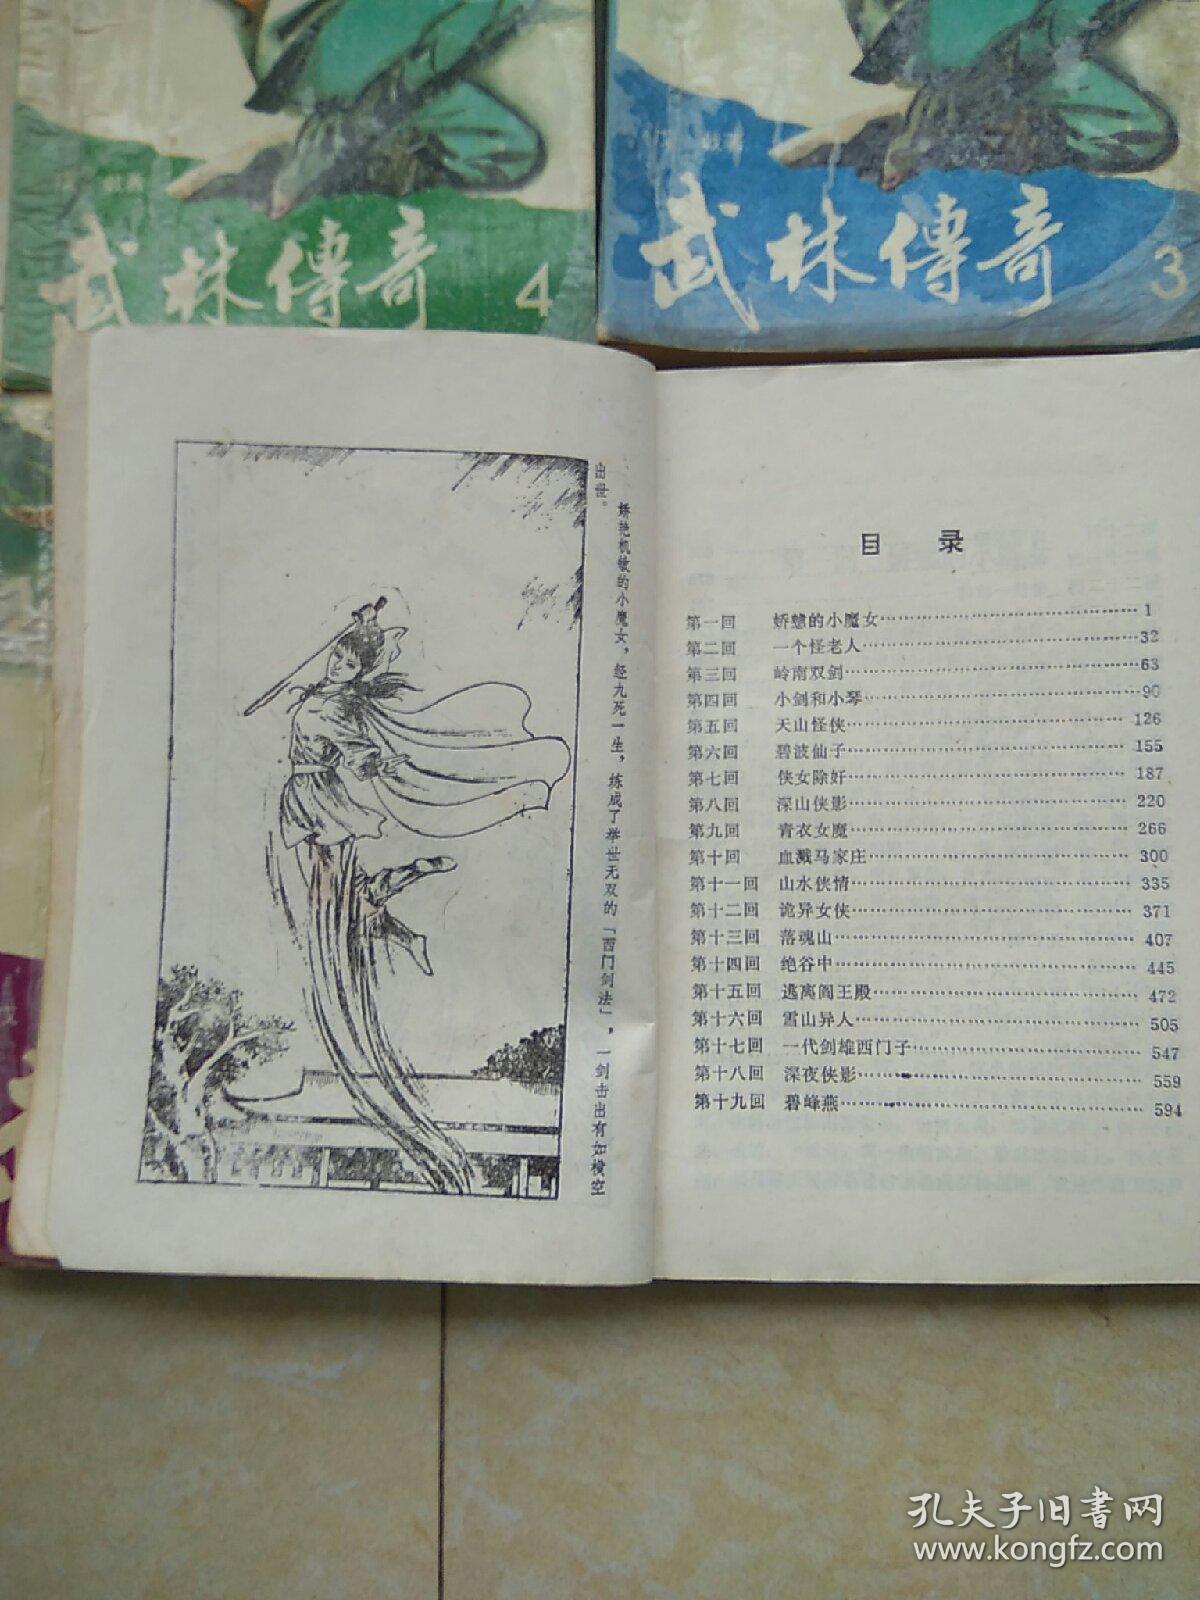 武林傳奇 4
武林傳奇 3
娇艳机敏的小魔女，经九死一生，练成了举世无双的「西门剑法」，一剑击出有如横空
出世。
目 录
第一回 娇戆的小魔女……1
第二回 一个怪老人……32
第三回 岭南双剑……63
第四回 小剑和小琴……90
第五回 天山怪侠……126
第六回 碧波仙子……155
第七回 侠女除奸……187
第八回 深山侠影……220
第九回 青衣女魔……266
第十回 血溅马家庄……300
第十一回 山水侠情……335
第十二回 诡异女侠……371
第十三回 落魂山……407
第十四回 绝谷中……445
第十五回 逃离阎王殿……472
第十六回 雪山异人……505
第十七回 一代剑雄西门子……547
第十八回 深夜侠影……559
第十九回 碧峰燕……594
孔夫子旧书网
www.kongfz.com